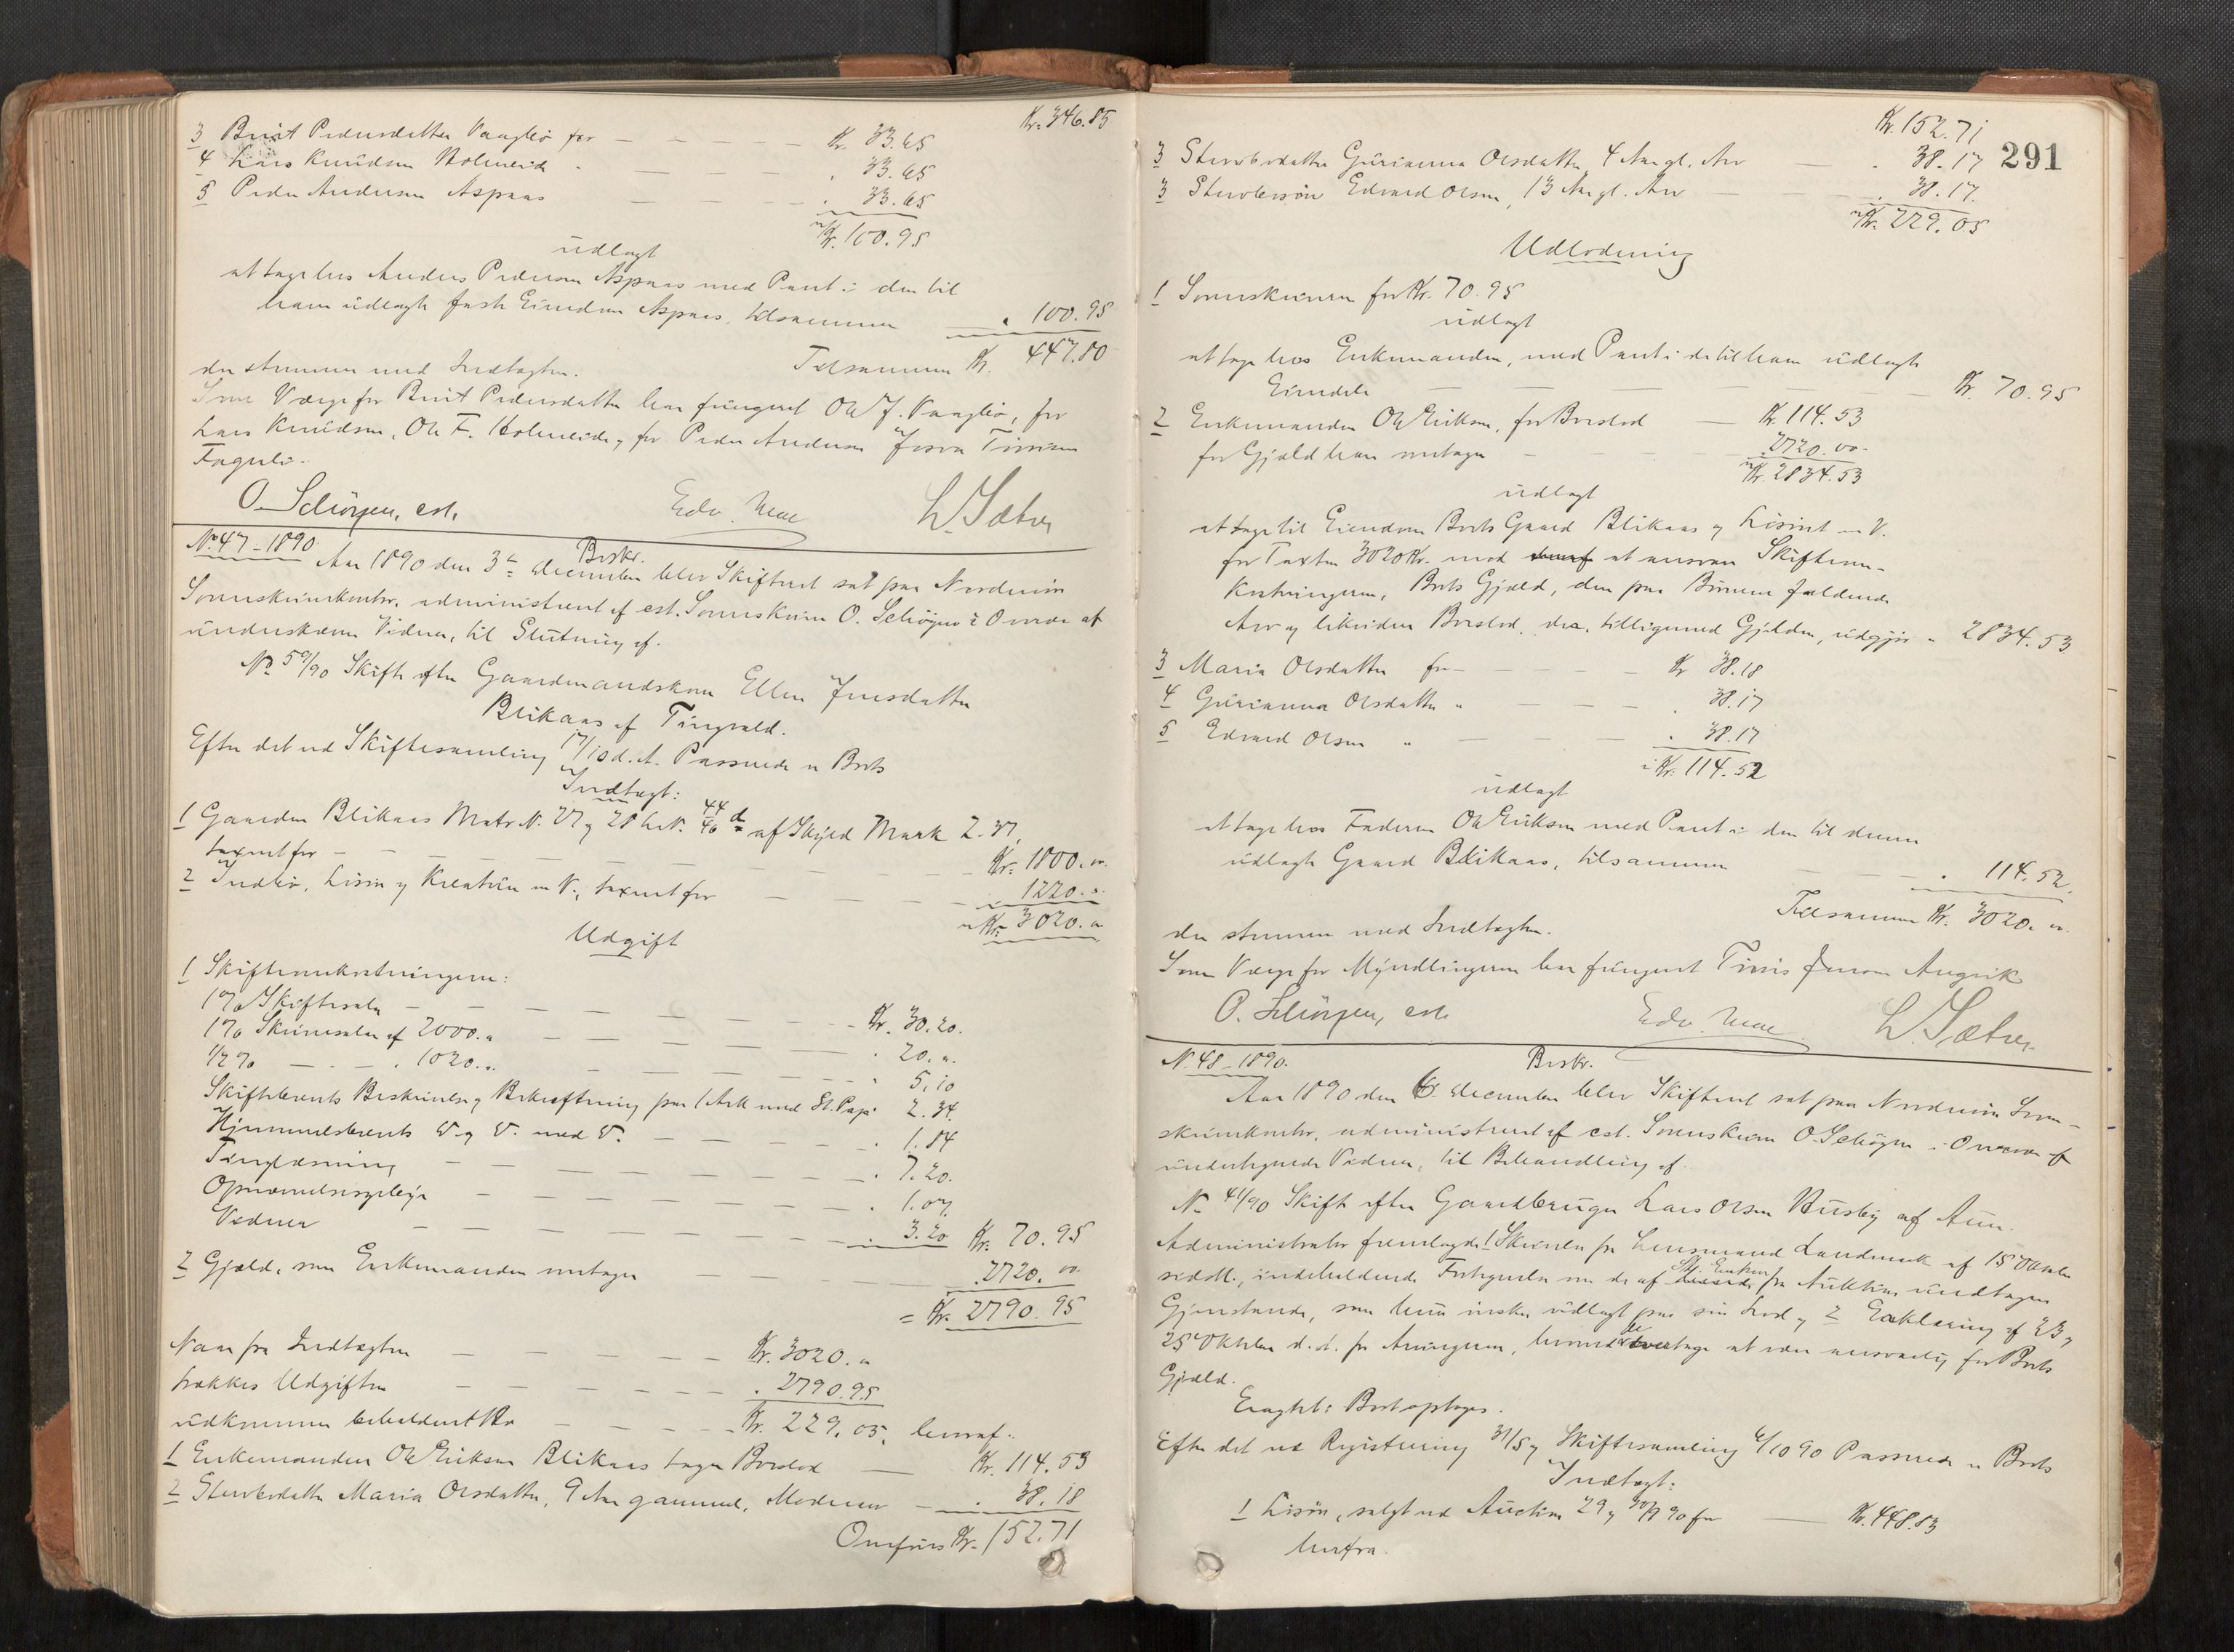 Kr. 346.85
3 Brit Pedersdatter Vaagbø for — Kr. 33.65
4 Lars Knudsen Holmeide — „ 33.65
5 Peder Andersen Aspaas — „ 33.65
Kr. 100.95
udlagt
at tage hos Anders Pedersen Aspaas med Pant i den til
ham udlagte faste Eiendom Aspaas, tilsammen — „ 100.95
Tilsammen Kr. 447.80
der stemmer med Indtægten.
Som Værge for Brit Pedersdatter har fungeret Ole J. Vaagbø, for
Lars Knudsen, Ole F. Holmeide, for Peder Andersen
O. Schöyen, cst.
L. Sæter
No 47-1890. Beskr.
Aar 1890 den 3de December blev Skifteret sat paa Nordmør
Sorenskriverkontor, administreret af cst. Sorenskriver O. Schöyen i Overvær af
underskrevne Vidner, til Slutning af.
No 59/90 Skifte efter Gaardmandskone Ellen Jensdatter
Blikaas af Tingvold.
Efter det ved Skiftesamling 17/10 d. A. Passerede er Boets
Indtægt:
1 Gaarden Blikaas Matr. N. 27 og 28 b. N. af Skyld Mark 2.37,
taxeret for — Kr. 1800. „
2 Indbo, Løsøre og Kreature m. V., taxeret for — 1220. „
Kr. 3020. „
Udgift
1 Skifteomkostningerne:
1% Skiftesalær — Kr. 30.20.
1% Skriversalær af 2000. „ — „ 20. „
1/2% — „ — „ 1020. „ — „ 5.10
Skiftebrevets Beskrivelse og Bekræftning paa 1 Ark med St. Papir 2.34.
Hjemmelsbrevets D. og D. med D. — „ 1.84
Tinglæsning — „ 7.20.
Opnævnelsesgebyr — „ 1.07.
Vidner — „ 3.20 Kr. 70.95
2 Gjæld, som Enkemanden mottager — 2720. 00
= Kr. 2790.95
Naar fra Indtægten — Kr. 3020. „
trækkes Udgiften — „ 2790.95
udkommer beholdent Bo — Kr. 229.05, hvoraf:
1 Enkemanden Ole Eriksen Blikaas tager Boeslod — Kr. 114.53
2 Stervbodatter Maria Olsdatter, 9 Aar gammel, Mødrearv — „ 38.18
Omføres Kr. 152.71
291
Kr. 152.71
3 Stervbodatter Gurianna Olsdatter, 4 Aar gl. Arv — „ 38.17
3 Stervbosøn Edvard Olsen, 13 Aar gl. Arv — „ 38.17.
Kr. 229.05
Udlodning
1 Sorenskriveren for Kr. 70.95
udlagt
at tage hos Enkemanden, med Pant i de til ham udlagte
Eiendele — Kr. 70.95
2 Enkemanden Ole Eriksen, for Boeslod — Kr. 114.53
for Gjæld han mottager — „ 2720.00
Kr. 2834.53
udlagt
at tage til Eiendom Boets Gaard Blikaas og Løsøret m. V.
for Taxten 3020 Kr. mod at ansvare Skifteom-
kostningerne, Boets Gjæld, den paa Børnene faldende
Arv og beholden Boeslod, der, tilligemed Gjælden, udgjør „ 2834.53
3 Maria Olsdatter for — Kr 38.18
4 Gurianna Olsdatter „ — „ 38.17
5 Edvard Olsen „ — „ 38.17
Kr. 114.52
udlagt
at tage hos Faderen Ole Eriksen med Pant i den til denne
udlagte Gaard Blikaas, tilsammen — „ 114.52.
Tilsammen Kr. 3020. „
der stemmer med Indtægten.
Som Værge for Myndlingerne har fungeret Jensen Angvik
O. Schöyen, cst.
L. Sæter
N. 48-1890. Beskr.
Aar 1890 den 6. December blev Skifteret sat paa Nordmør Soren-
skriverkontor, administreret af cst. Sorenskriver O. Schöyen i Overvær af
undertegnede Vidner, til Behandling af
No 41/90 Skifte efter Gaardbruger Lars Olsen Husby af Aure.
Administrator fremlagde 1 Skrivelse fra Lensmand Landmark af 15 Oktober
sidstl., indeholdende Fortegnelse over de af Enken fra Auktion undtagne
Gjenstande, som hun ønsker udlagt paa sin Lod, og 2 Erklæring af 23 og
25 Oktober d. A. fra Arvingerne, hvorved de vedtage at være ansvarlig for Boets
Gjæld.
Eragtet: Boet optages.
Efter det ved Registrering 31/5 og Skiftesamling 6/10 90 Passerede er Boets
Indtægt:
1 Løsøre, solgt ved Auction 29 og 30/9 90 for — Kr. 448.83
herfra.